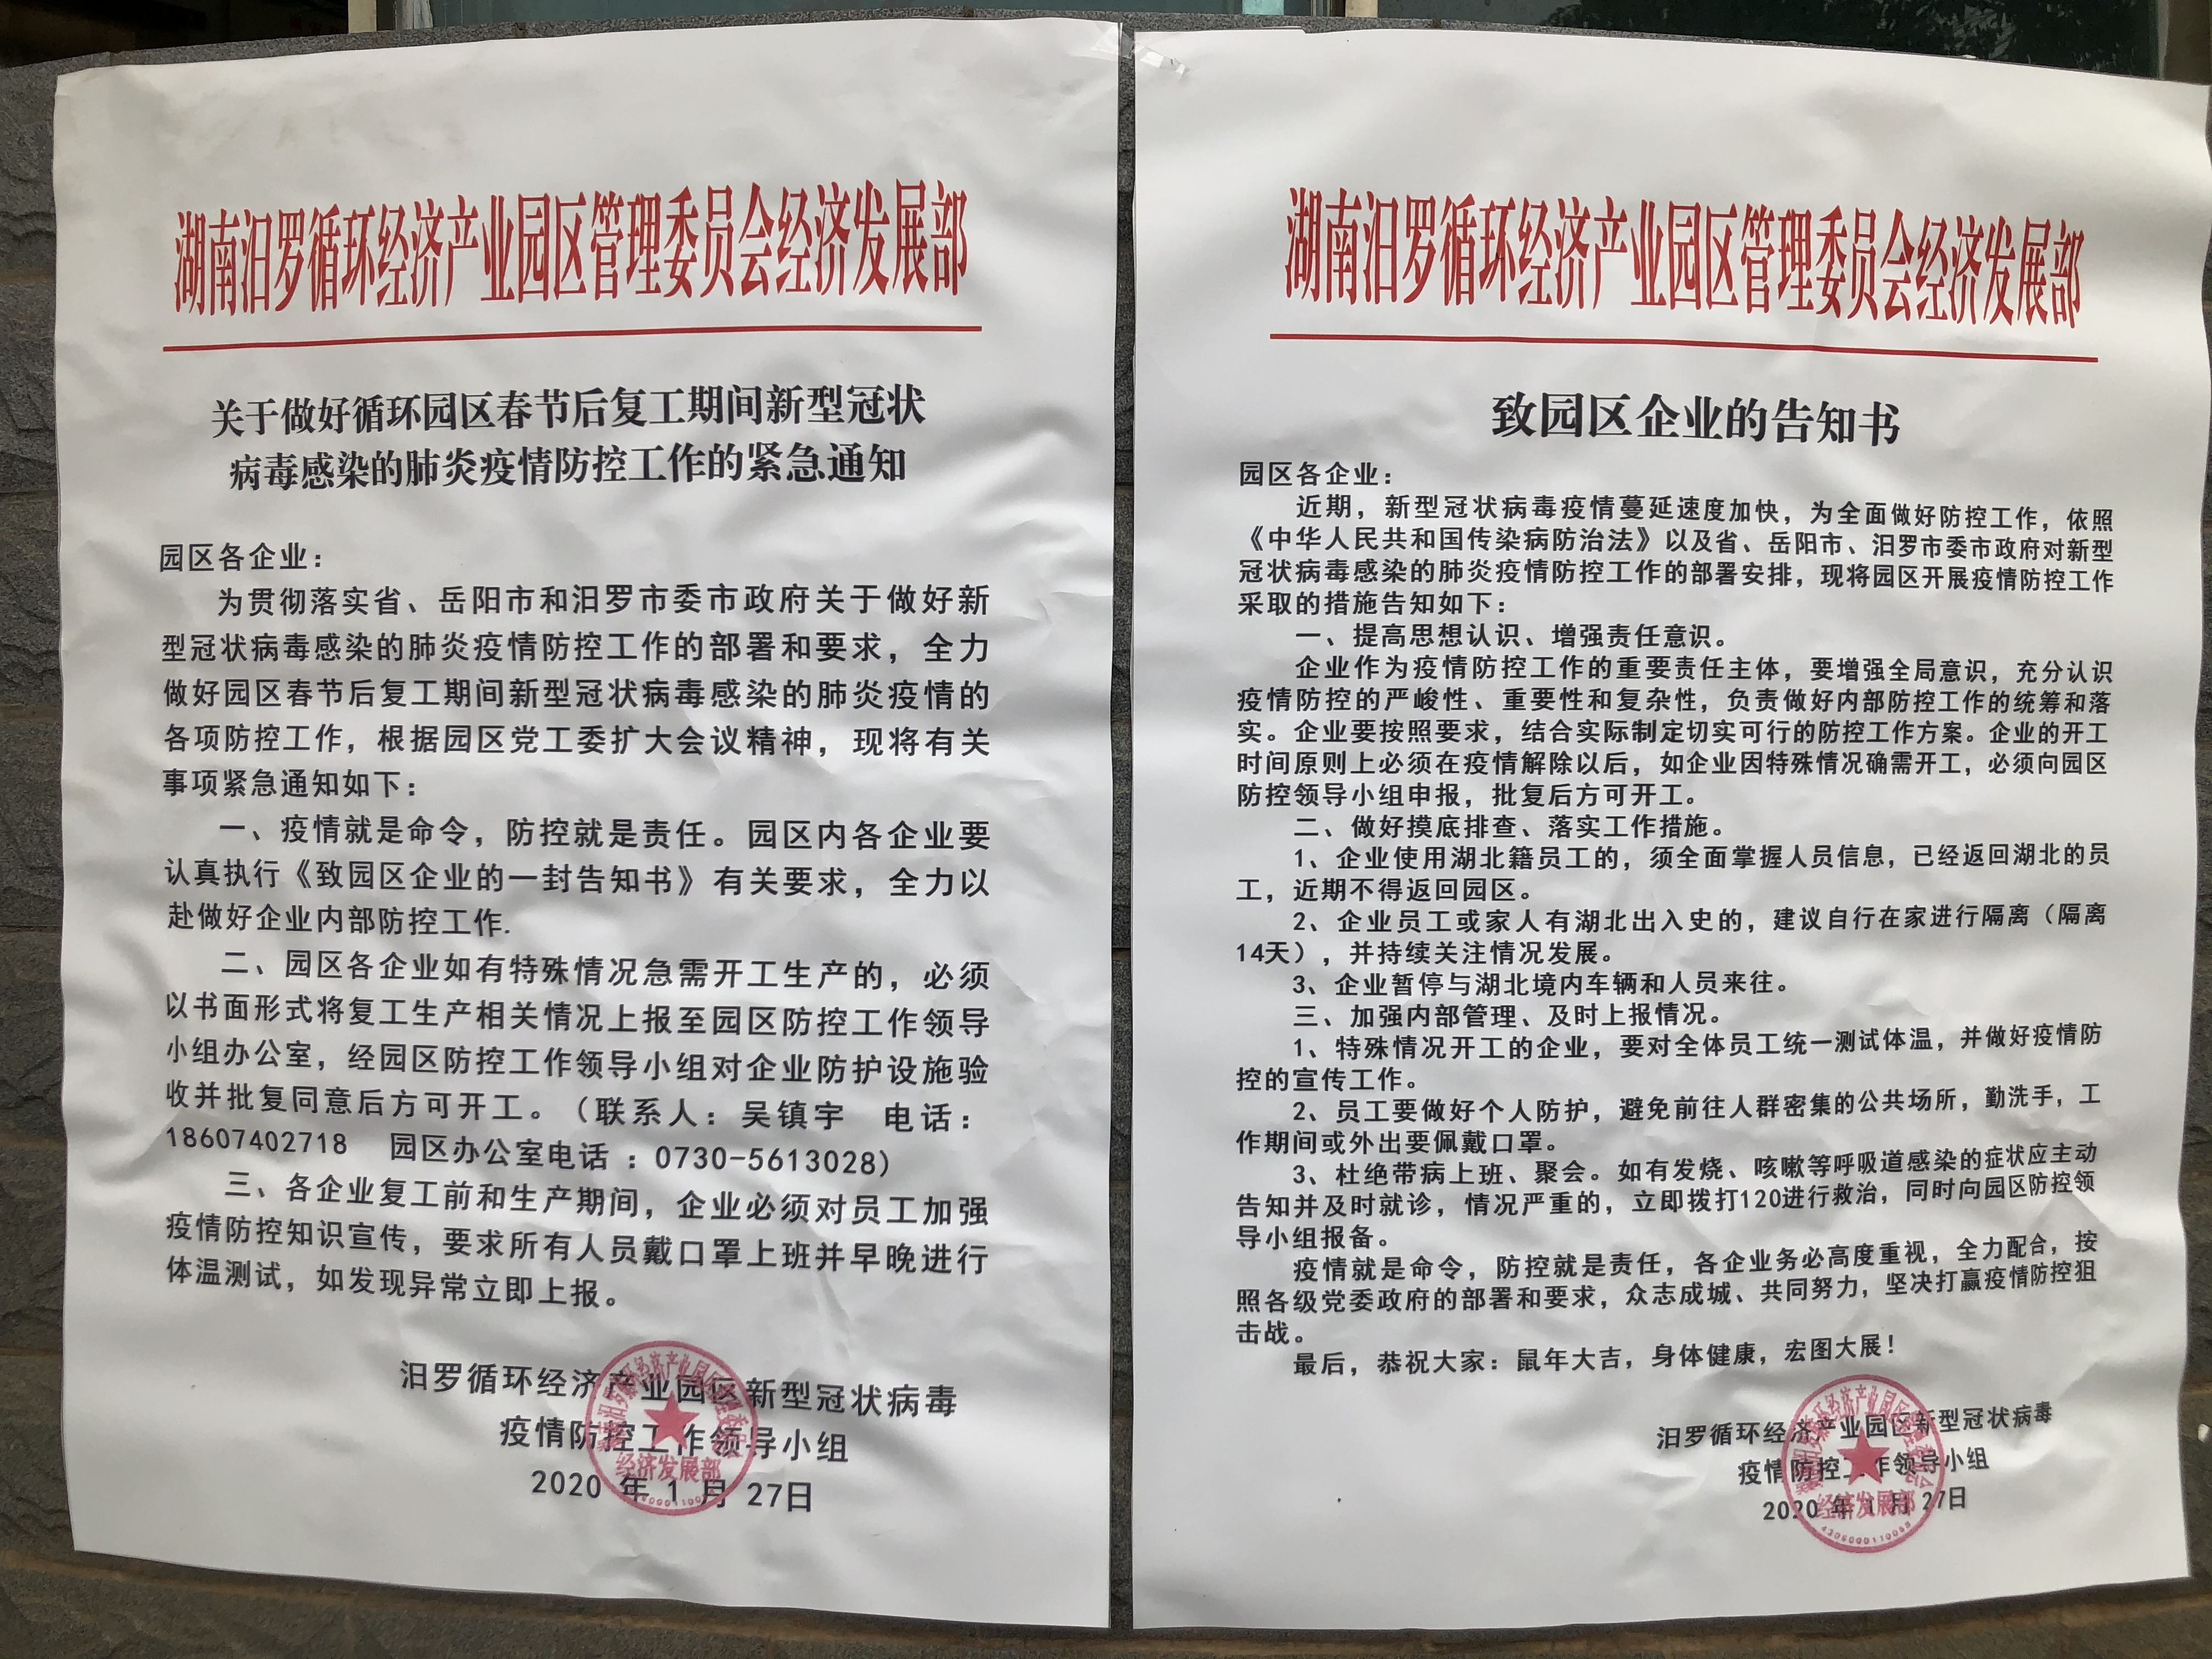 湖南汨罗循环经济产业园区管理委员会经济发展部
关于做好循环园区春节后复工期间新型冠状
病毒感染的肺炎疫情防控工作的紧急通知
园区各企业：
为贯彻落实省、岳阳市和汨罗市委市政府关于做好新
型冠状病毒感染的肺炎疫情防控工作的部署和要求，全力
做好园区春节后复工期间新型冠状病毒感染的肺炎疫情的
各项防控工作，根据园区党工委扩大会议精神，现将有关
事项紧急通知如下：
一、疫情就是命令，防控就是责任。园区内各企业要
认真执行《致园区企业的一封告知书》有关要求，全力以
赴做好企业内部防控工作.
二、园区各企业如有特殊情况急需开工生产的，必须
以书面形式将复工生产相关情况上报至园区防控工作领导
小组办公室，经园区防控工作领导小组对企业防护设施验
收并批复同意后方可开工。（联系人：吴镇宇 电话：
18607402718 园区办公室电话 ：0730-5613028）
三、各企业复工前和生产期间，企业必须对员工加强
疫情防控知识宣传，要求所有人员戴口罩上班并早晚进行
体温测试，如发现异常立即上报。
汨罗循环经济产业园区新型冠状病毒
疫情防控工作领导小组
2020 年 1 月 27日
经济发展部
湖南汨罗循环经济产业园区管理委员会经济发展部
致园区企业的告知书
园区各企业：
近期，新型冠状病毒疫情蔓延速度加快，为全面做好防控工作，依照
《中华人民共和国传染病防治法》以及省、岳阳市、汨罗市委市政府对新型
冠状病毒感染的肺炎疫情防控工作的部署安排，现将园区开展疫情防控工作
采取的措施告知如下：
一、提高思想认识、增强责任意识。
企业作为疫情防控工作的重要责任主体，要增强全局意识，充分认识
疫情防控的严峻性、重要性和复杂性，负责做好内部防控工作的统筹和落
实。企业要按照要求，结合实际制定切实可行的防控工作方案。企业的开工
时间原则上必须在疫情解除以后，如企业因特殊情况确需开工，必须向园区
防控领导小组申报，批复后方可开工。
二、做好摸底排查、落实工作措施。
1、企业使用湖北籍员工的，须全面掌握人员信息，已经返回湖北的员
工，近期不得返回园区。
2、企业员工或家人有湖北出入史的，建议自行在家进行隔离（隔离
14天），并持续关注情况发展。
3、企业暂停与湖北境内车辆和人员来往。
三、加强内部管理、及时上报情况。
1、特殊情况开工的企业，要对全体员工统一测试体温，并做好疫情防
控的宣传工作。
2、员工要做好个人防护，避免前往人群密集的公共场所，勤洗手，工
作期间或外出要佩戴口罩。
3、杜绝带病上班、聚会。如有发烧、咳嗽等呼吸道感染的症状应主动
告知并及时就诊，情况严重的，立即拨打120进行救治，同时向园区防控领
导小组报备。
疫情就是命令，防控就是责任，各企业务必高度重视，全力配合，按
照各级党委政府的部署和要求，众志成城、共同努力，坚决打赢疫情防控狙
击战。
最后，恭祝大家：鼠年大吉，身体健康，宏图大展！
汨罗循环经济产业园区新型冠状病毒
疫情防控工作领导小组
2020 年 1 月 27日
经济发展部